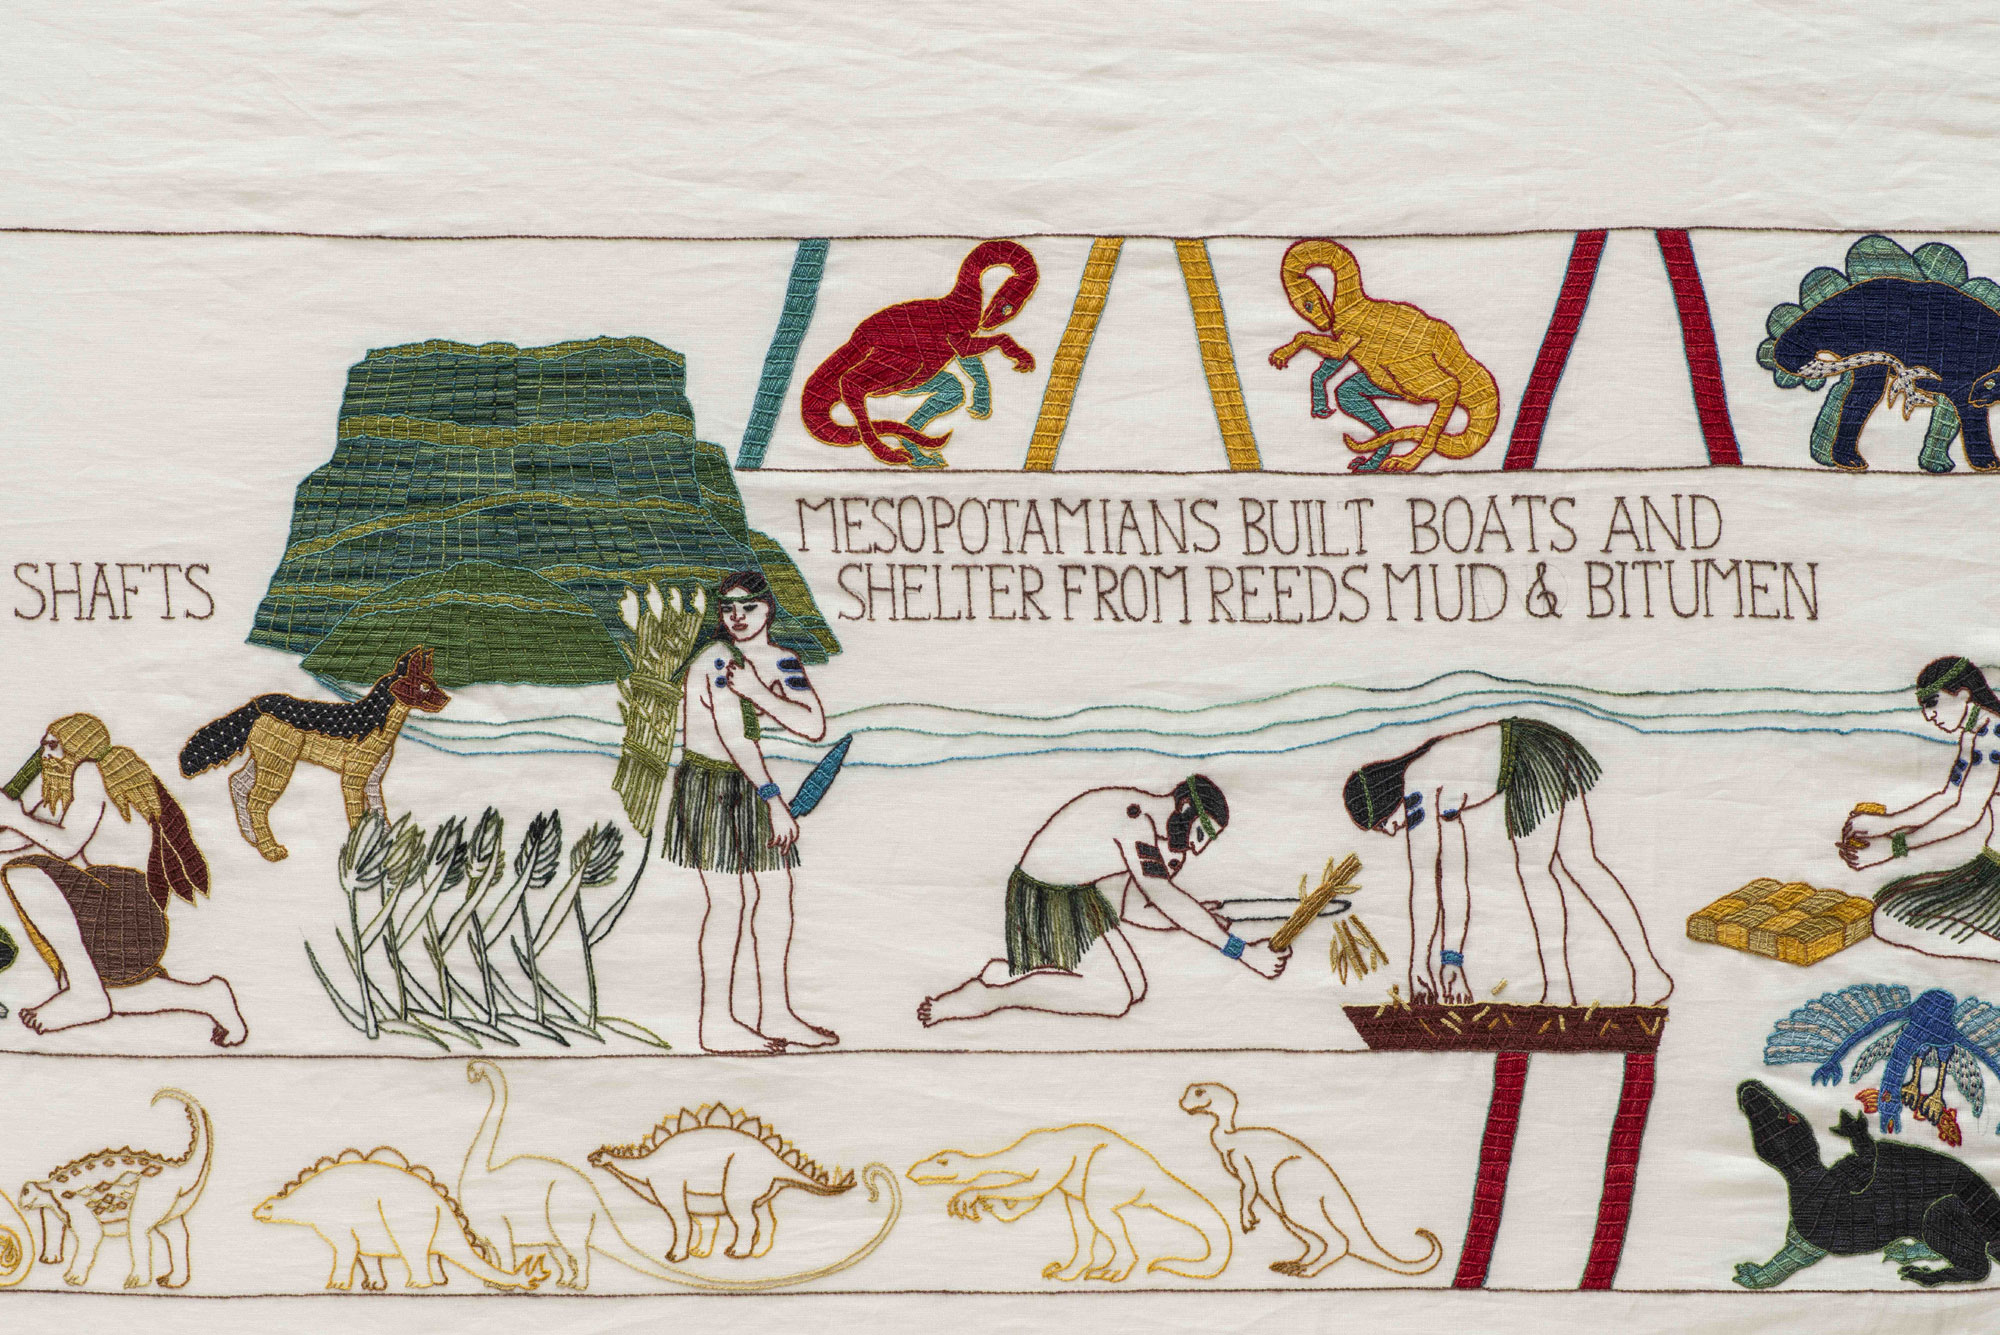 SHAFTS
MESOPOTAMIANS BUILT BOATS AND
SHELTER FROM REEDS MUD & BITUMEN